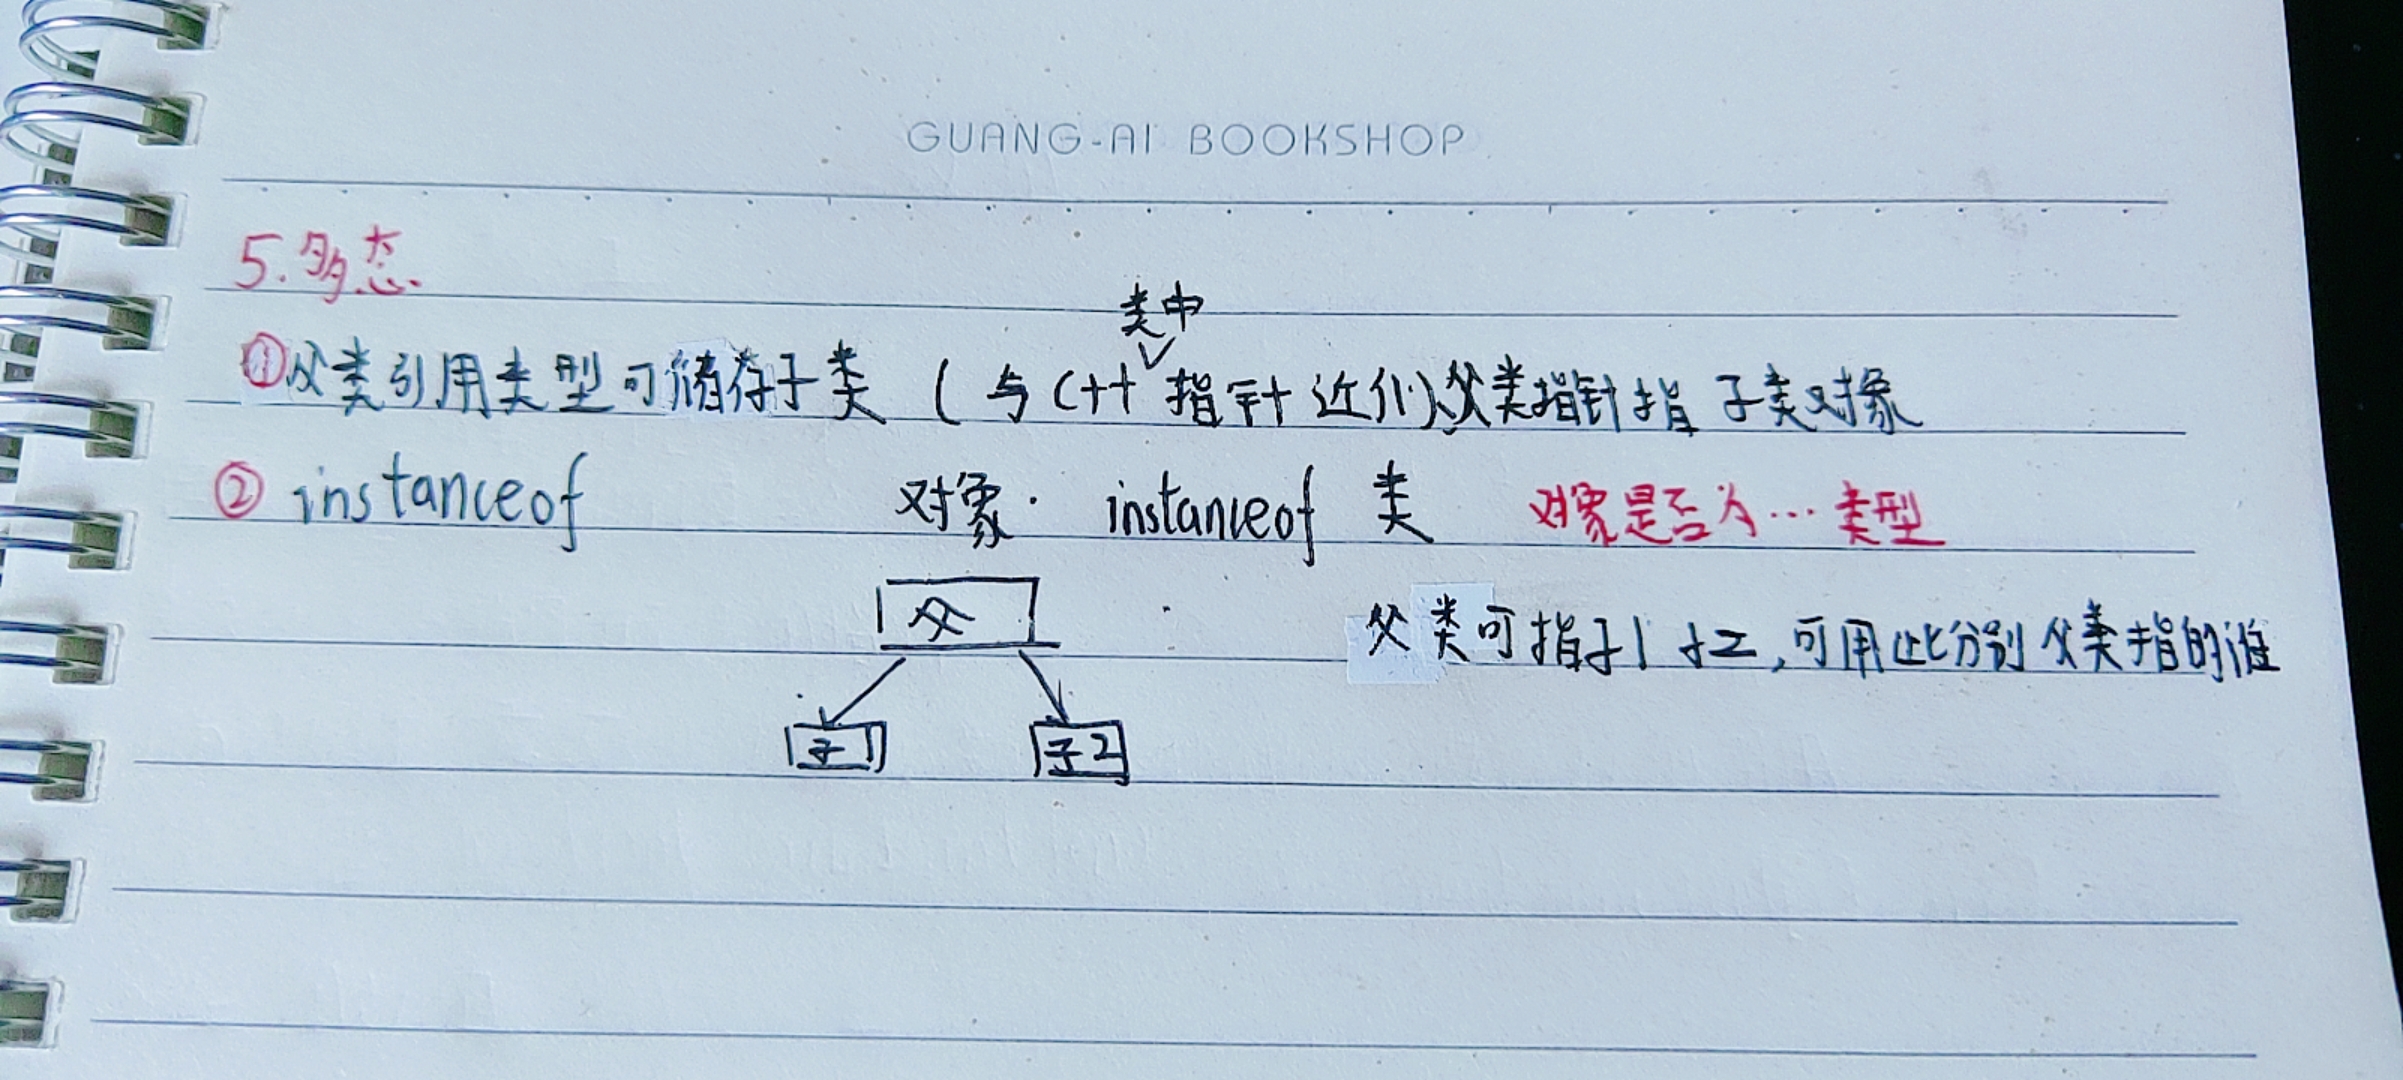 GUANG-AI BOOKSHOP
5.多态
类中
①父类引用类型可储存子类 (与C++指针近似)父类指针指子类对象
② instanceof 对象. instanceof 类 对象是否为…类型
父 父类可指子1 子2,可用此分别父类指的谁
子1 子2